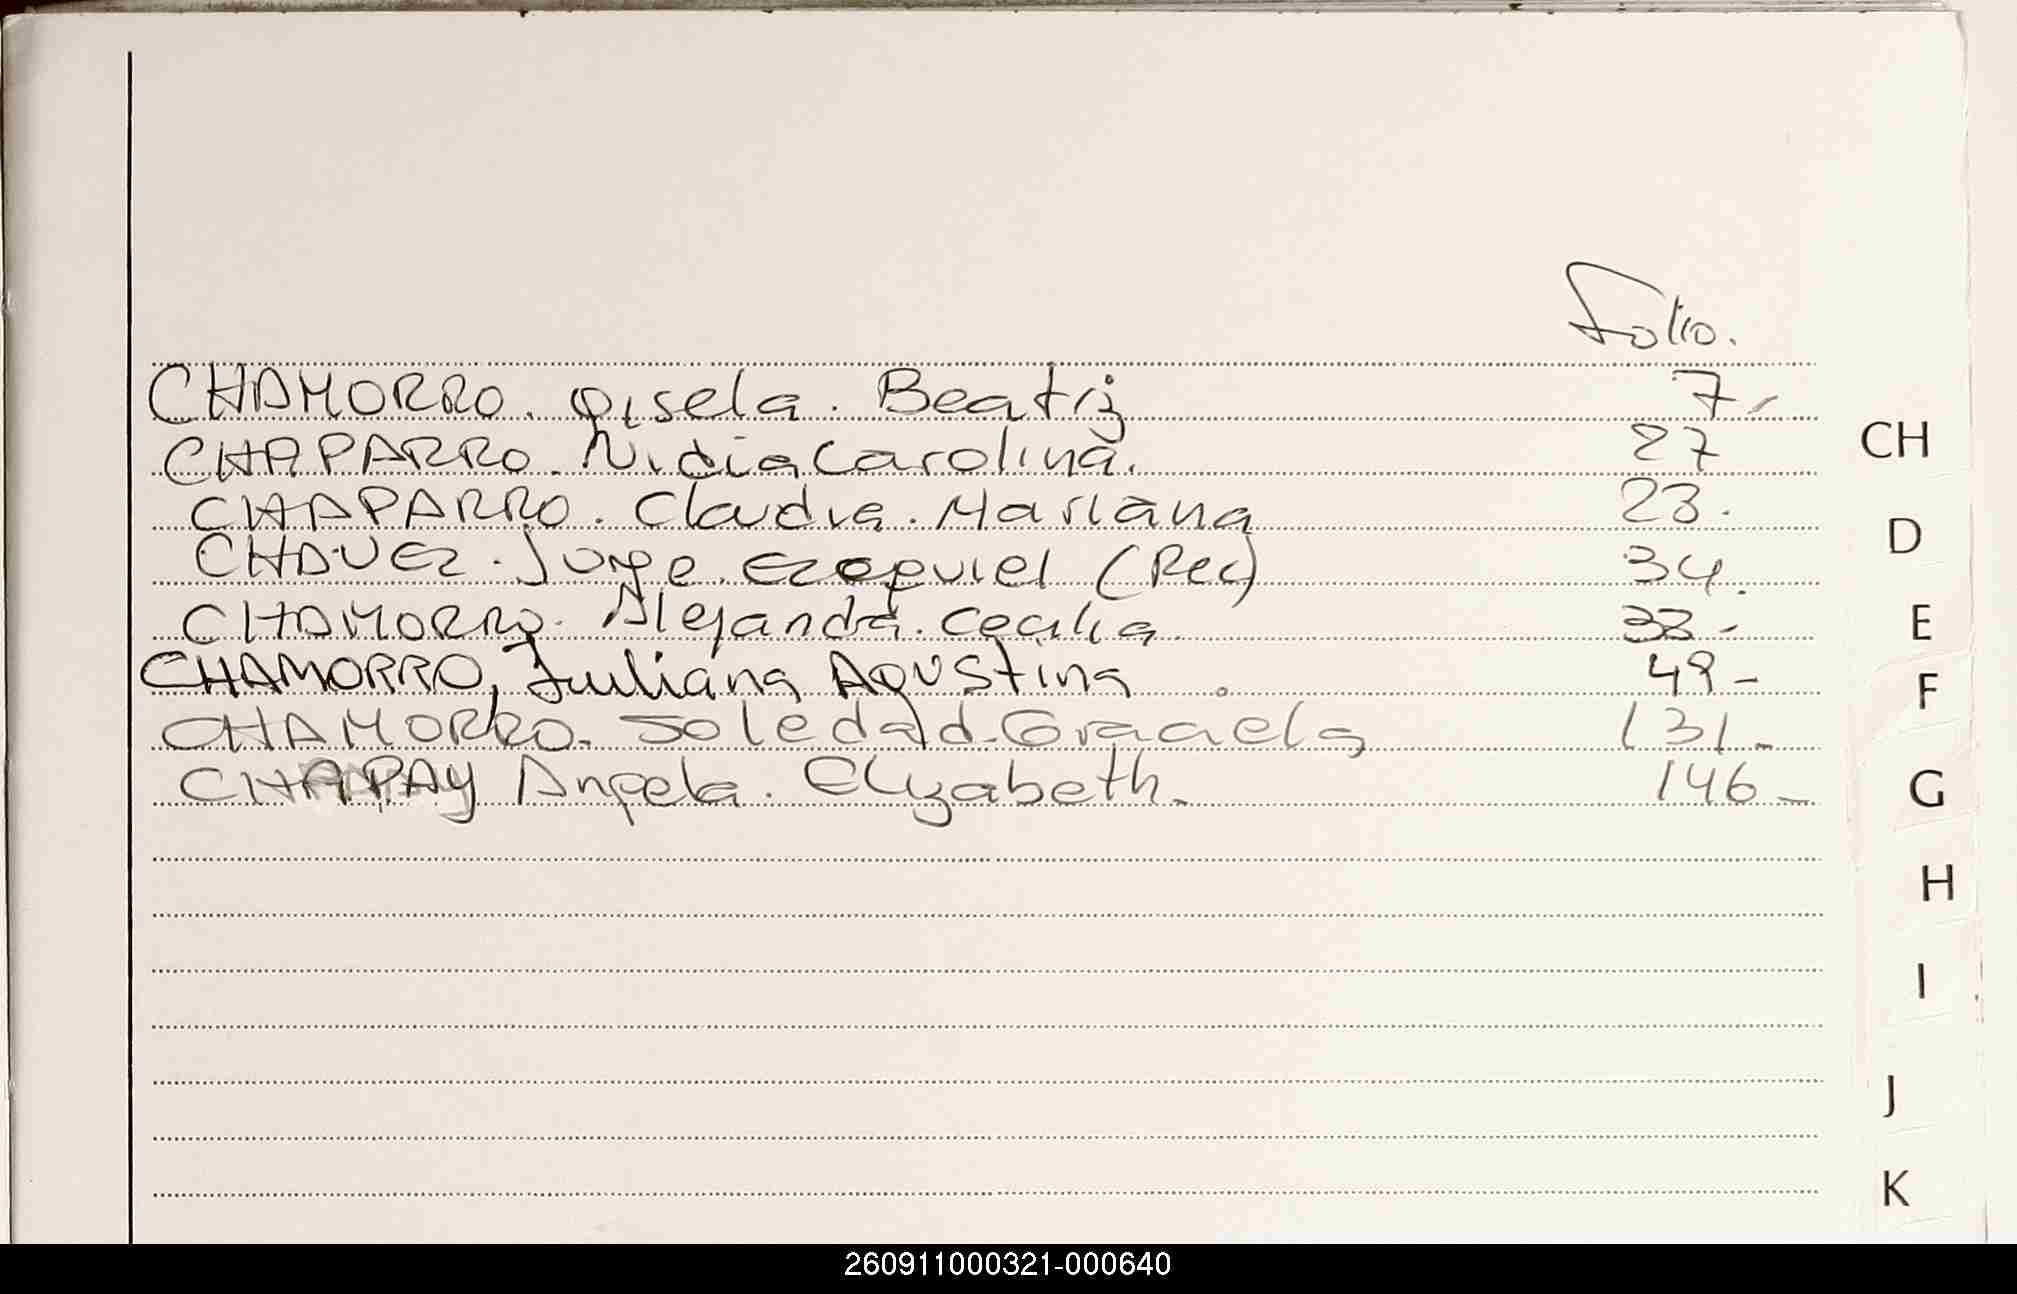 Folio.
CHAMORRO. Gisela. Beatriz 7.-
CHAPARRO. Nidia Carolina. 27
CHAPARRO. Claudia. Mariana 23.
CHAVEZ. Jorge. Ezequiel (Rec) 34.
CHAMORRO. Alejandra. Cecilia 33.-
CHAMORRO, Juliana Agustina . 49-
CHAMORRO. Soledad. Graciela 131.-
CHAPAY Angela. Elyzabeth. 146-
CH
D
E
F
G
H
I
J
K
260911000321-000640